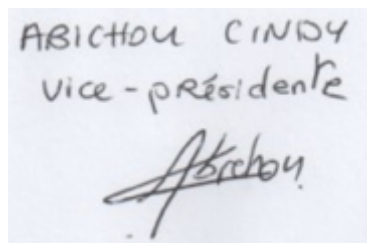 ABICHOU CINDY
Vice-présidente
Abichou